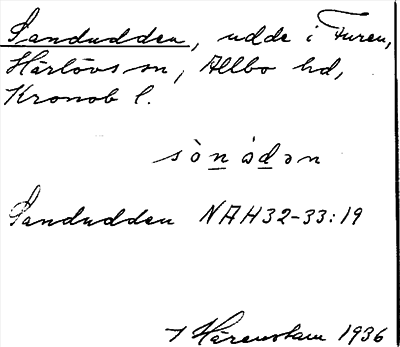 Sandudden, udde i Furen,
Härlövs sn, Allbo hd,
Kronob l.
sònùdən
Sandudden NAH32-33:19
Härenstam 1936